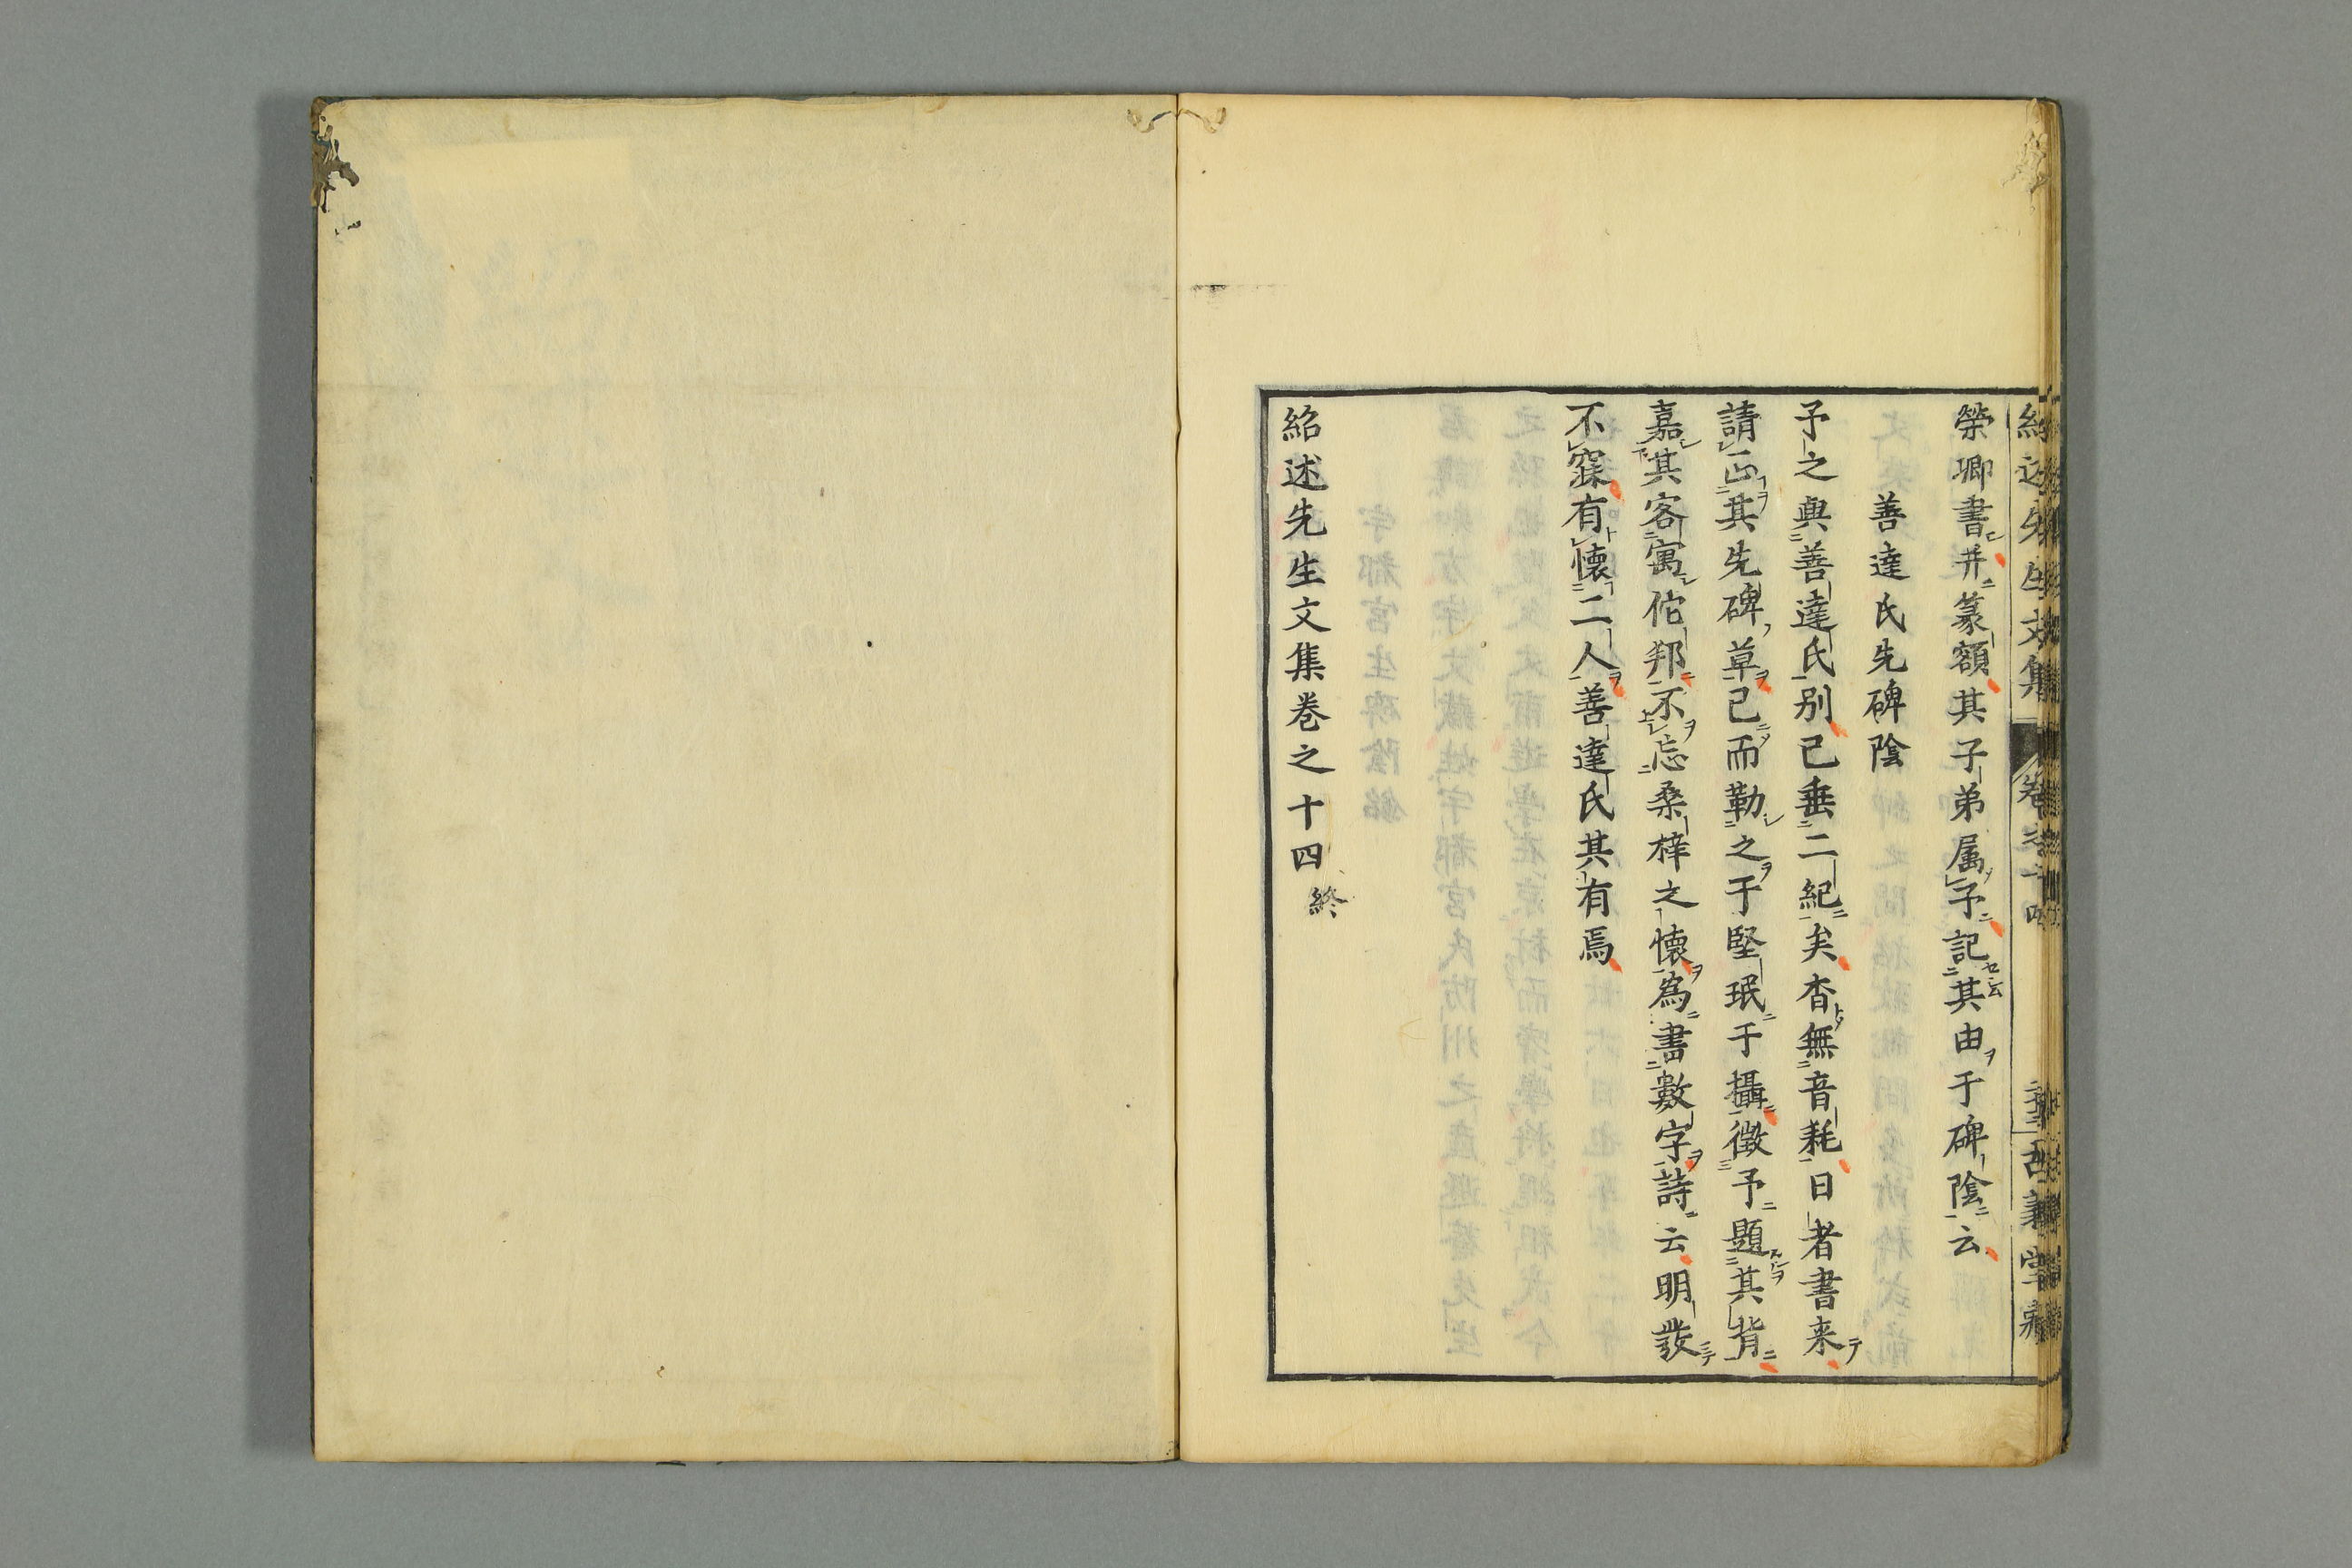 紹述先生文集 卷之十四 古義堂藏
榮卿書并篆額其子弟属予記其由于碑陰云
善達氏先碑陰
予之與善達氏別已垂二紀矣杳無音耗日者書来
請正其先碑草已而勒之于堅珉于攝徵予題其背
嘉其客寓佗邦不忘桑梓之懷為書數字詩云明發
不寐有懷二人善達氏其有焉
紹述先生文集卷之十四終